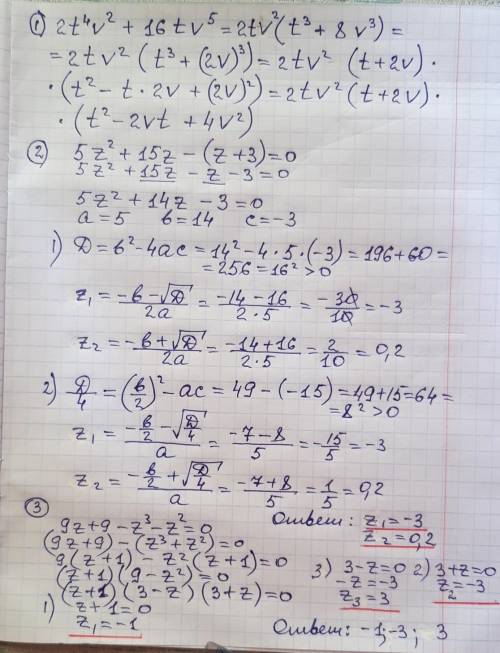 ① 2t⁴v² + 16tv⁵ = 2tv²(t³ + 8v³) =
= 2tv² (t³ + (2v)³) = 2tv² (t + 2v) ·
· (t² - t · 2v + (2v)²) = 2tv² (t + 2v) ·
· (t² - 2vt + 4v²)
② 5z² + 15z - (z + 3) = 0
5z² + 15z - z - 3 = 0
5z² + 14z - 3 = 0
a = 5 в = 14 c = -3
1) D = в² - 4ac = 14² - 4 · 5 · (-3) = 196 + 60 =
= 256 = 16² > 0
z₁ = (-в - √D)/2a = (-14 - 16)/(2 · 5) = -30/10 = -3
z₂ = (-в + √D)/2a = (-14 + 16)/(2 · 5) = 2/10 = 0,2
2) D/4 = (в/2)² - ac = 49 - (-15) = 49 + 15 = 64 =
= 8² > 0
z₁ = (-в/2 - √(D/4))/a = (-7 - 8)/5 = -15/5 = -3
z₂ = (-в/2 + √(D/4))/a = (-7 + 8)/5 = 1/5 = 0,2
Ответ: z₁ = -3
z₂ = 0,2
③ 9z + 9 - z³ - z² = 0
(9z + 9) - (z³ + z²) = 0
9(z + 1) - z² (z + 1) = 0
(z + 1) (9 - z²) = 0
(z + 1) (3 - z) (3 + z) = 0
1) z + 1 = 0
z₁ = -1
3) 3 - z = 0
-z = -3
z₃ = 3
2) 3 + z = 0
z₂ = -3
Ответ: -1; -3; 3